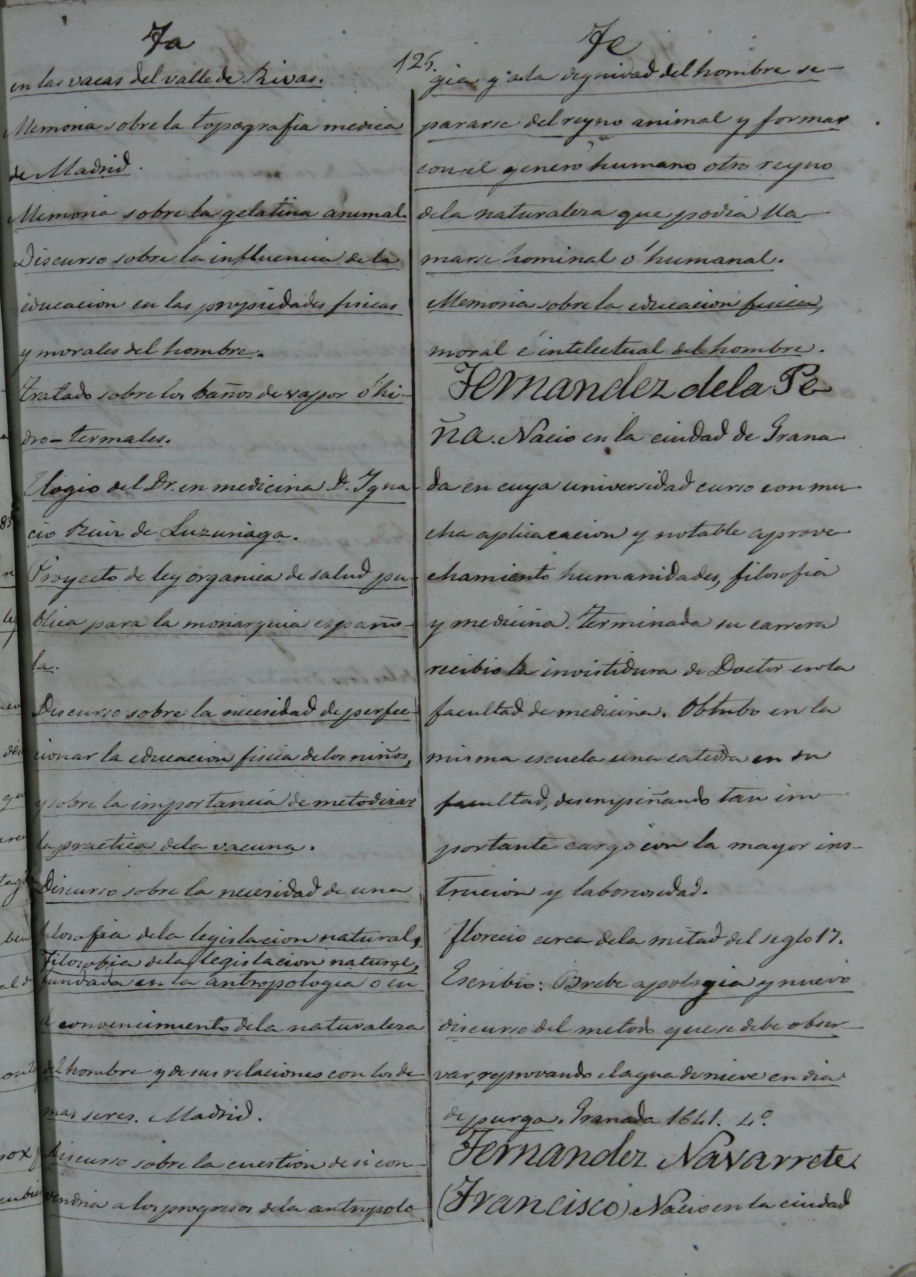 Fa
en las vacas del valle de Rivas.
Memoria sobre la topografia medica
de Madrid.
Memoria sobre la gelatina animal.
Discurso sobre la influencia de la
educacion en las propiedades fisicas
y morales del hombre.
Tratado sobre los baños de vapor ó hi-
dro-termales.
Elogio del Dr. en medicina Dn. Igna-
cio Ruiz de Luzuriaga.
Proyecto de ley organica de salud pu-
blica para la monarquia españo-
la.
Discurso sobre la necesidad de perfec-
cionar la educacion fisica de los niños,
y sobre la importancia de metodizar
la practica de la vacuna.
Discurso sobre la necesidad de una
filosofia de la legislacion natural,
Filosofia de la legislacion natural,
fundada en la antropologia o en
el convencimiento de la naturaleza
del hombre y de sus relaciones con los de-
mas seres. Madrid.
Discurso sobre la cuestion de si con-
vendria a los progresos de la antropolo
125.
Fe
gia y a la dignidad del hombre se-
pararse del reyno animal y formar
con el genero humano otro reyno
de la naturaleza que podia lla-
marse hominal ó humanal.
Memoria sobre la educacion fisica,
moral é intelectual del hombre.
Fernandez de la Pe
ña. Nacio en la ciudad de Grana
da en cuya universidad curso con mu-
cha aplicacacion y notable aprove
chamiento humanidades, filosofia
y medicina. Terminada su carrera
recibio la invistidura de Doctor en la
facultad de medicina. Obtubo en la
misma escuela una catedra en su
facultad, desempeñando tan im-
portante cargo con la mayor ins-
trucion y laboriosidad.
Florecio cerca de la mitad del seglo 17.
Escribio: Brebe apologia y nuevo
discurso del metodo que se debe obser-
var, reprovando el agua de nieve en dia
de purga. Granada 1641. 4º
Fernandez Navarrete
(Francisco) Nacio en la ciudad